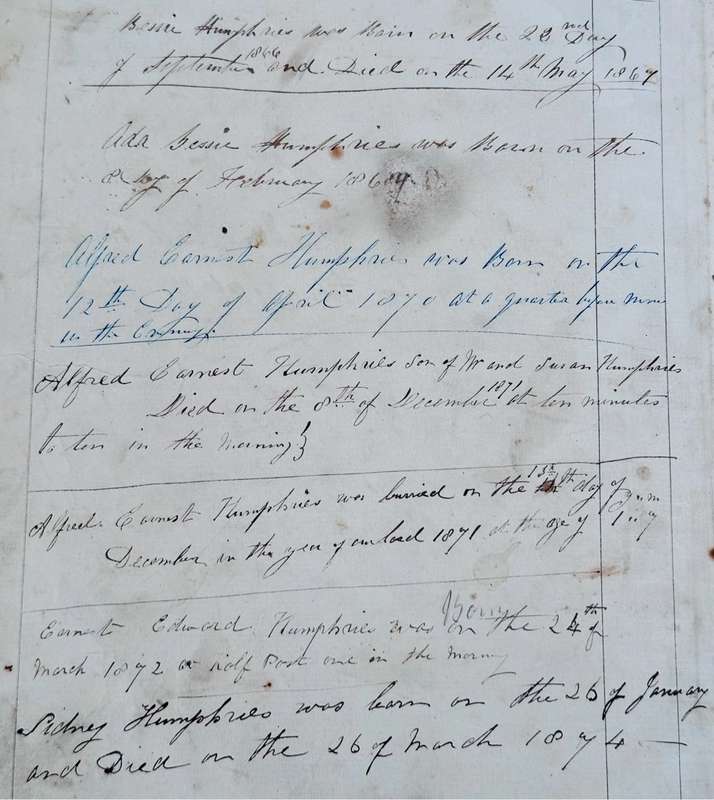 Bessie Humphries was Born on the 22nd Day
of September 1866 and Died on the 14th May 1867
Ada Bessie Humphries was Born on the
8 Day of February 186
Alfred Earnest Humphries was Born on the
12th Day of April 1870 at a quarter before nine
in the Evening
Alfred Earnest Humphries Son of Wm and Susan Humphries
Died on the 8th of December 1871 at ten minutes
to ten in the Morning
Alfred Earnest Humphries was buried on the 13th day of
December in the year of our lord 1871 at the age of 1
Earnest Edward Humphries was Born on the 24th of
March 1872 at half Past one in the Morning
Sidney Humphries was born on the 26 of January
and Died on the 26 of March 1874